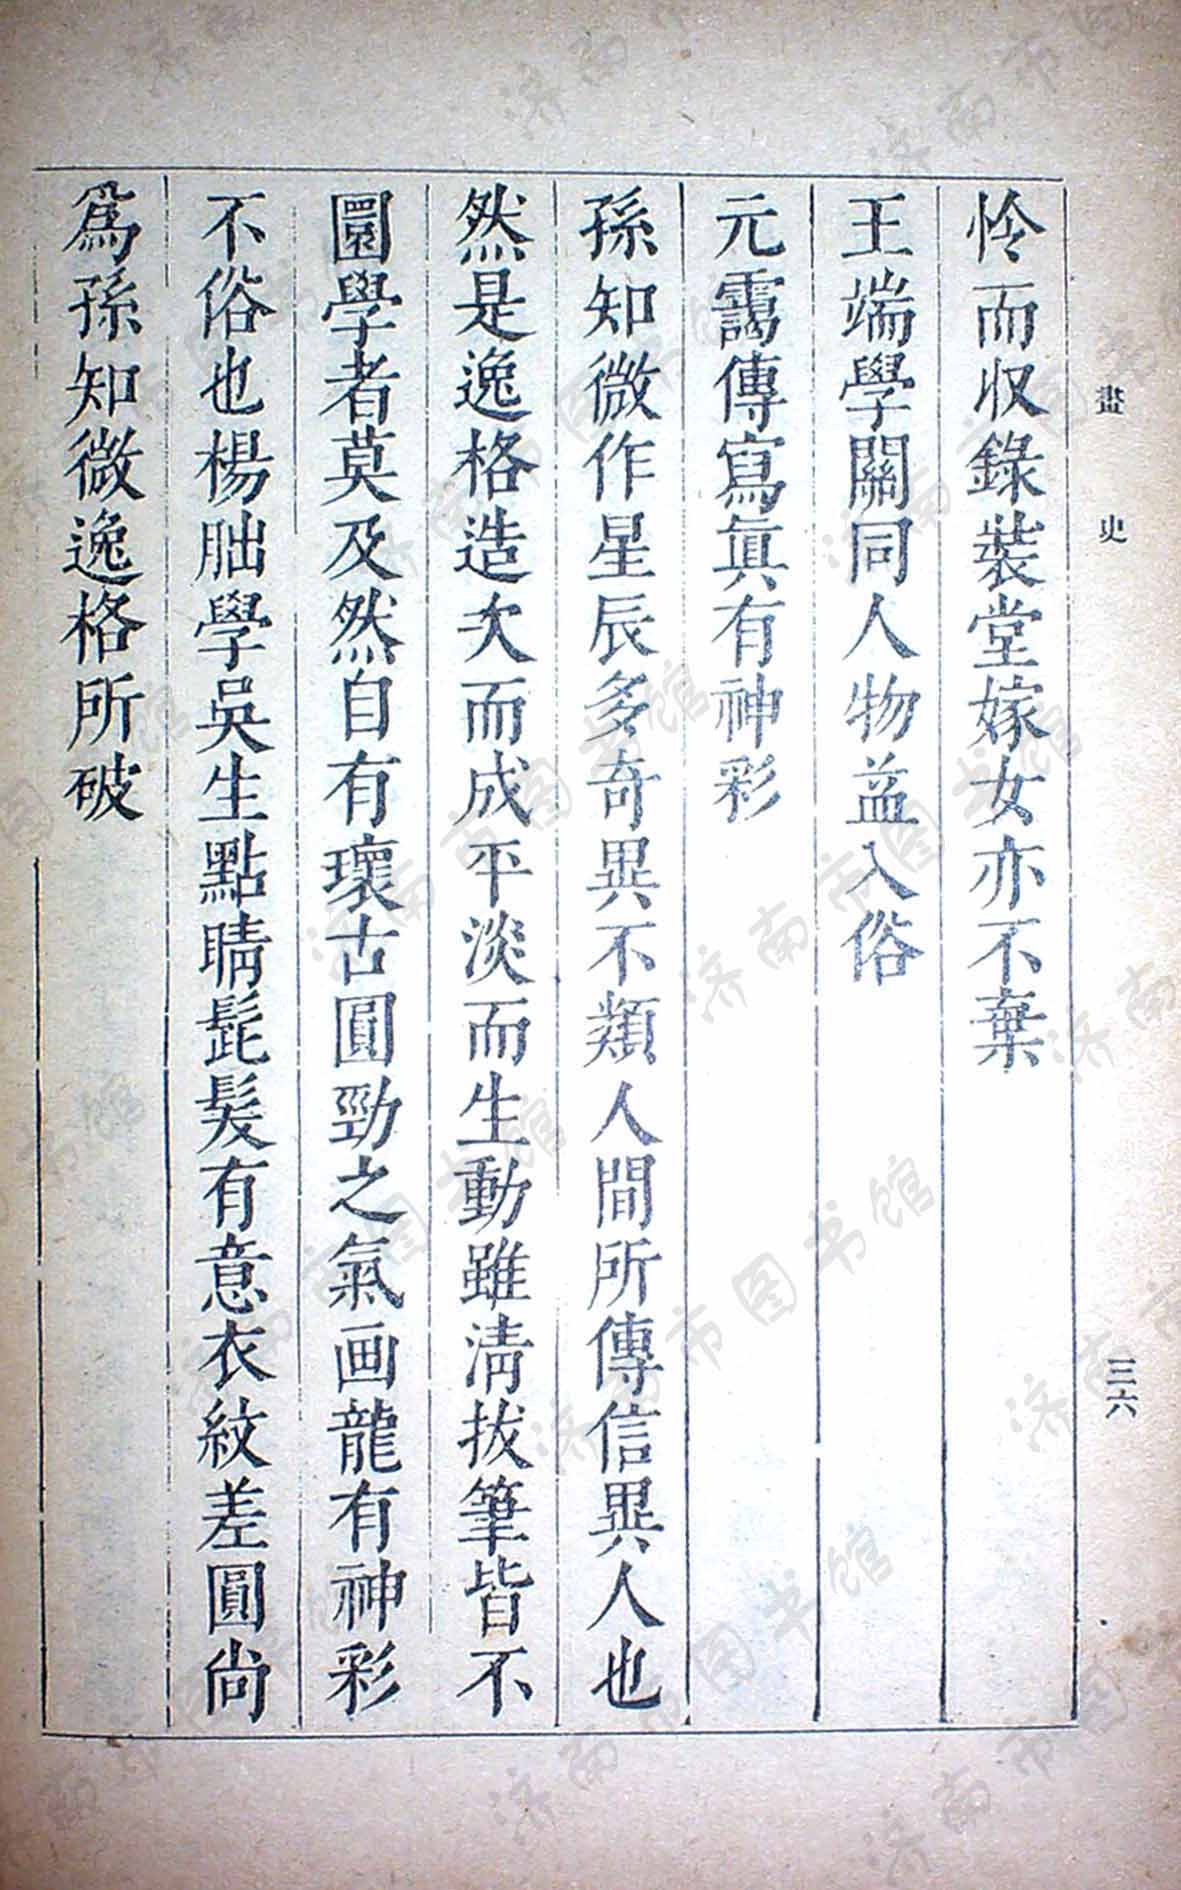 畫史
三六
怜而収錄裝堂嫁女亦不棄
王端學關同人物益入俗
元靄傳寫眞有神彩
孫知微作星辰多奇異不類人間所傳信異人也
然是逸格造次而成平淡而生動雖淸拔筆皆不
圜學者莫及然自有瓌古圓勁之氣画龍有神彩
不俗也楊朏學吳生點睛髭髮有意衣紋差圓尙
爲孫知微逸格所破
济南市图书馆